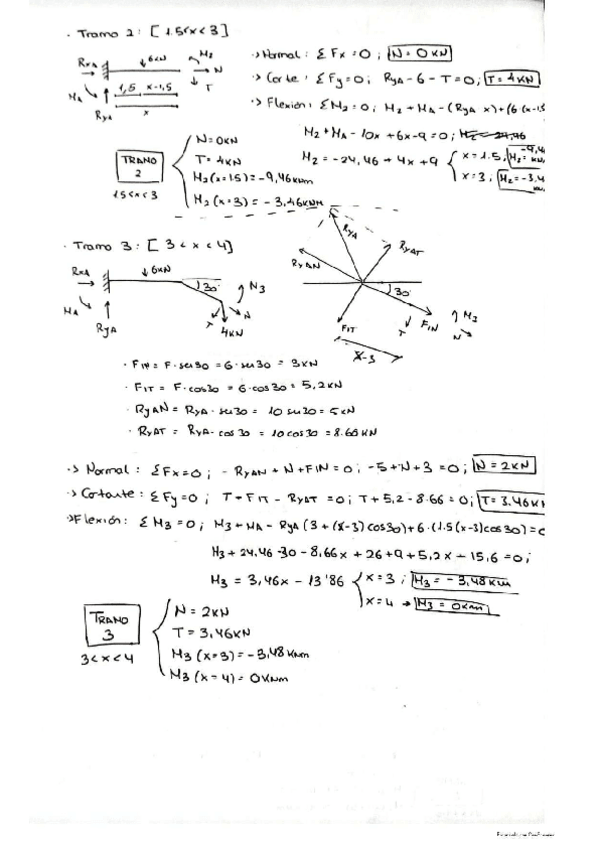 · Tramo 2: [ 1.5<x<3]
RxA 6kN M2 N T
MA 1,5 x-1,5
RyA x
·> Normal: ΣFx=0 ; N=0kN
·> Corte: ΣFy=0; RyA-6-T=0; T=4kN
·> Flexión: ΣM2=0; M2+MA-(RyA x)+(6·(x-1.5
M2+MA-10x+6x-9=0;
M2=-24,46+4x+9 { x=1.5,
x=3;
TRAMO 2
1.5<x<3
N=0kN
T=4kN
M2(x=1.5)=-9,46kNm
M2(x=3)=-3,46kNm
· Tramo 3: [ 3<x<4]
RxA 6kN 30 M3 N
MA RyA T 4kN
RyA RyAT RyAN 30 FIT T FIN M3 N x-3
· FIN=F·sen30=6·sen30=3kN
· FIT=F·cos30=6·cos30=5,2kN
· RyAN=RyA·sen30=10 sen30=5kN
· RyAT=RyA·cos30=10cos30=8.66kN
·> Normal: ΣFx=0; -RyAN+N+FIN=0; -5+N+3=0; N=2kN
·> Cortante: ΣFy=0; T+FIT-RyAT=0; T+5,2-8.66=0; T=3.46kN
·> Flexión: ΣM3=0; M3+MA-RyA(3+(x-3)cos30)+6·(1.5(x-3)cos30)=0
M3+24,46-30-8,66x+26+9+5,2x-15,6=0;
M3=3,46x-13'86 { x=3; M3=-3,48kNm
x=4 → M3=0kNm
TRAMO 3
3<x<4
N=2kN
T=3,46kN
M3(x=3)=-3,48kNm
M3(x=4)=0kNm